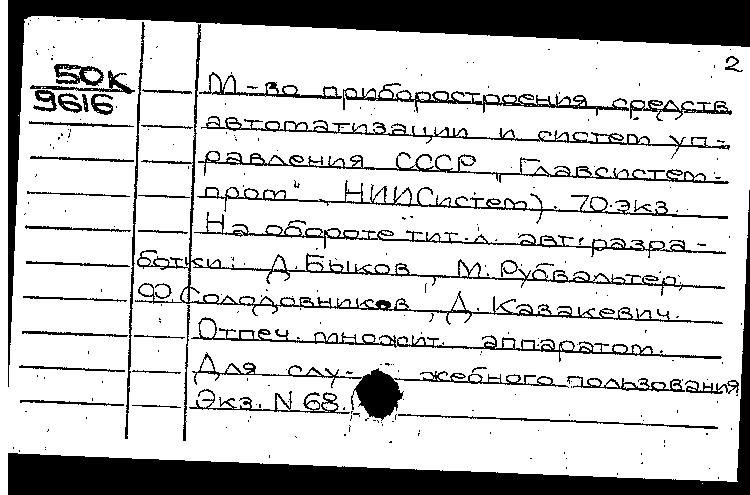 2
50К
9616
М-во приборостроения, средств
автоматизации и систем уп-
равления СССР, "Главсистем-
пром", НИИСистем). 70 экз.
На обороте тит. л. авт. разра-
ботки: Д. Быков, М. Рубвальтер,
Ю. Солодовников, Д. Казакевич.
Отпеч. множит. аппаратом.
Для слу- жебного пользования
Экз. N 68.